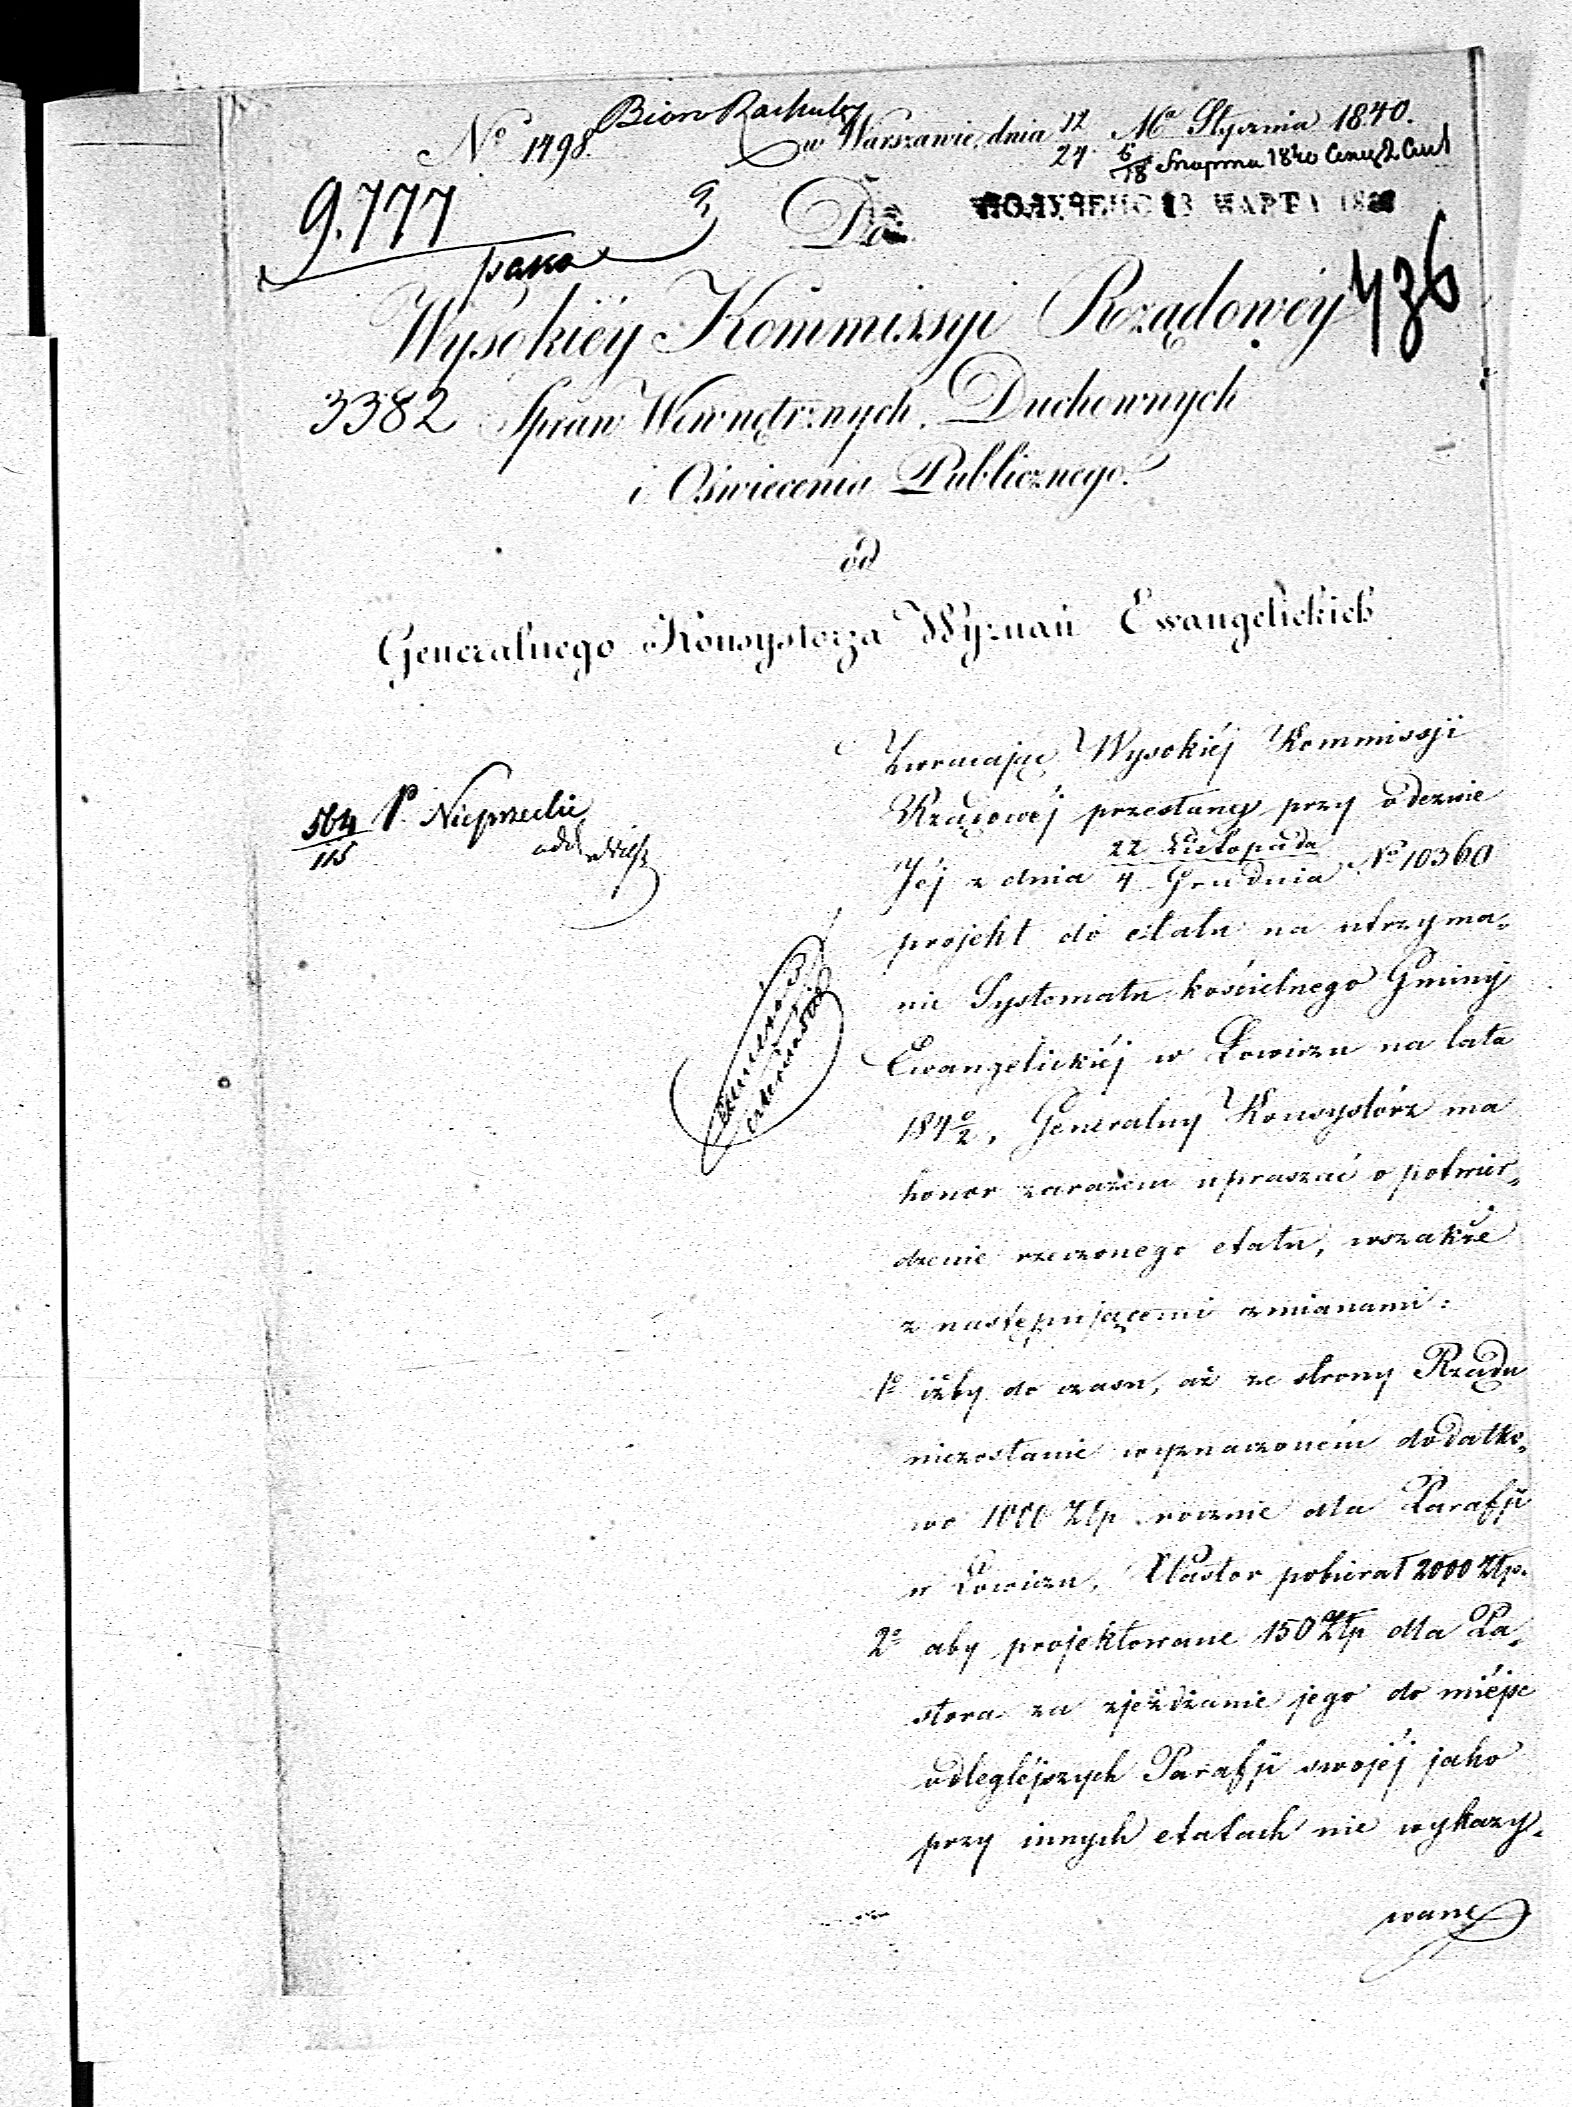 Nº 1498.
Biuro Rachuby
w Warszawie, dnia 12/24 Mca Stycznia 1840.
6/18 Марта 1840
9.777
ПОЛУЧЕНО 13 МАРТА
Do
436
Wysokiéy Kommissyi Rządowéy
3382 Spraw Wewnętrznych, Duchownych
i Oświecenia Publicznego.
od
Generalnego Konsystorza Wyznań Ewangelickich
564/115 P. Nieprzecki
Zwracając Wysokiéj Kommissji
Rządowéj przesłany przy odezwie
Jéj z dnia 22 Listopada / 4 Grudnia Nº 10360
projekt do etatu na utrzyma„
nie Systematu kościelnego Gminy
Ewangelickiéj w Łowiczu na lata
184 0/2, Generalny Konsystórz ma
honor zarazem upraszać o potwier„
dzenie rzeczonego etatu, wszakże
z następującemi zmianami:
1º iżby do czasu, aż ze strony Rządu
niezostanie wyznaczoném dodatko„
wo 1000 Złp. rocznie dla Parafji
w Łowiczu, Pastor pobierał 2000 Złp.
2º aby projektowane 150 Złp dla Pa„
stora za zjeżdżanie jego do miéjsc
odległéjszych Parafji swojéj jako
przy innych etatach nie wykazy„
wane